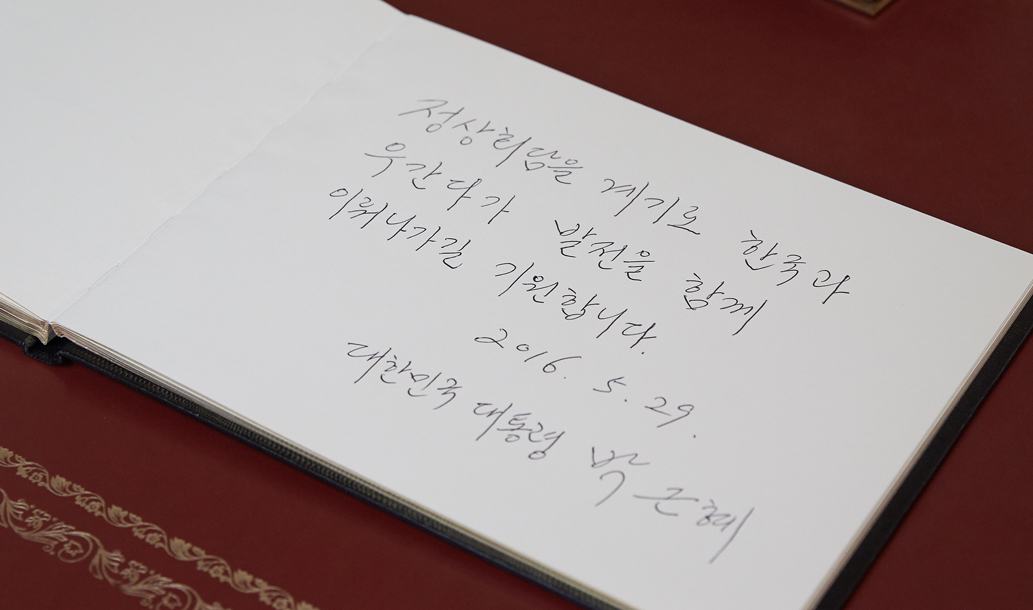 정상회담을 계기로 한국과
우간다가 발전을 함께
이뤄나가길 기원합니다.
2016. 5. 29.
대한민국 대통령 박 근 혜